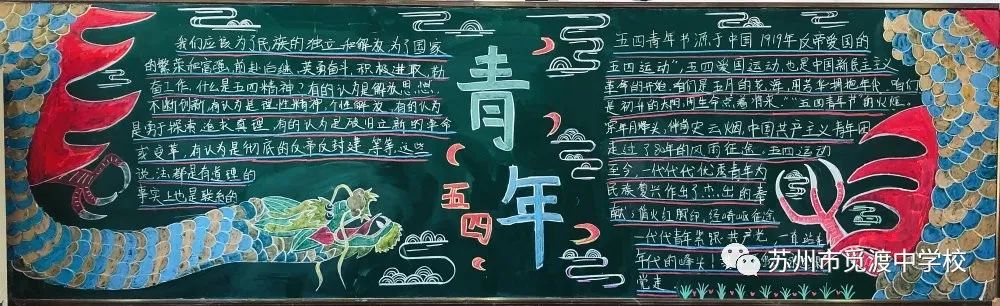 我们应该为了民族的独立和解放为了国家
的繁荣和富强前赴后继、英勇奋斗、积极进取、勤
奋工作。什么是五四精神?有的认为是解放思想、
不断创新,有认为是理性精神,个性解放,有的认为
是勇于探索追求真理,有的认为是破旧立新的革命
或变革,有认为是彻底的反帝反封建,等等,这些
说法都是有道理的
事实上也是联系的
青年
五四
五四青年节源于中国1919年反帝爱国的
五四运动",五四爱国运动,也是中国新民主主义
革命的开始,咱们是五月的花海,用青春拥抱年代,咱们
是初升的太阳,用生命点燃未来。""五四青年节"的火炬。
岁月峰头,伸首史云烟,中国共产主义青年团
走过了年的风雨征途,五四运动
至今,一代代代优秀青年为
民族复兴作出了杰出的奉
献,脚印,征途
一代代青年紧跟共产党,一直
年代的峰头!
党走
苏州市觅渡中学校